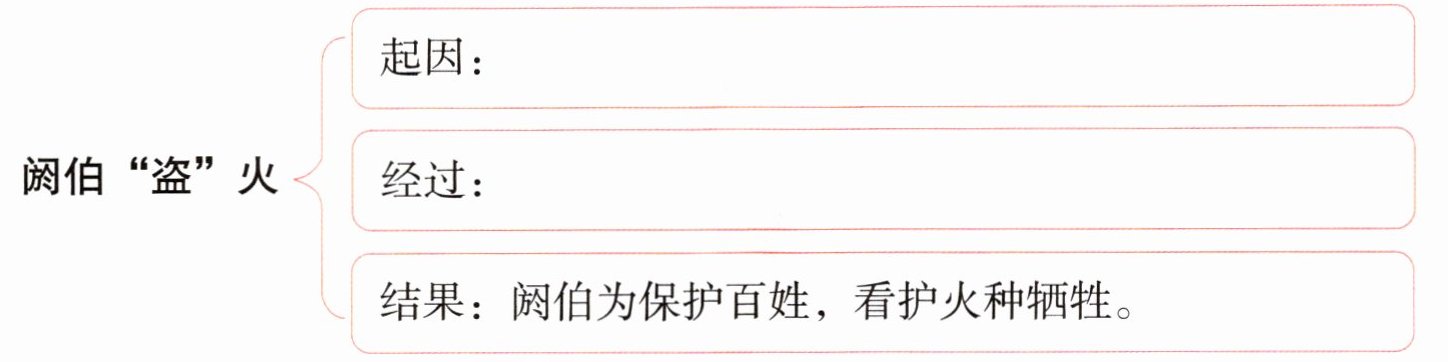 起因：
经过：
阏伯“盗”火
结果：阏伯为保护百姓，看护火种牺牲。